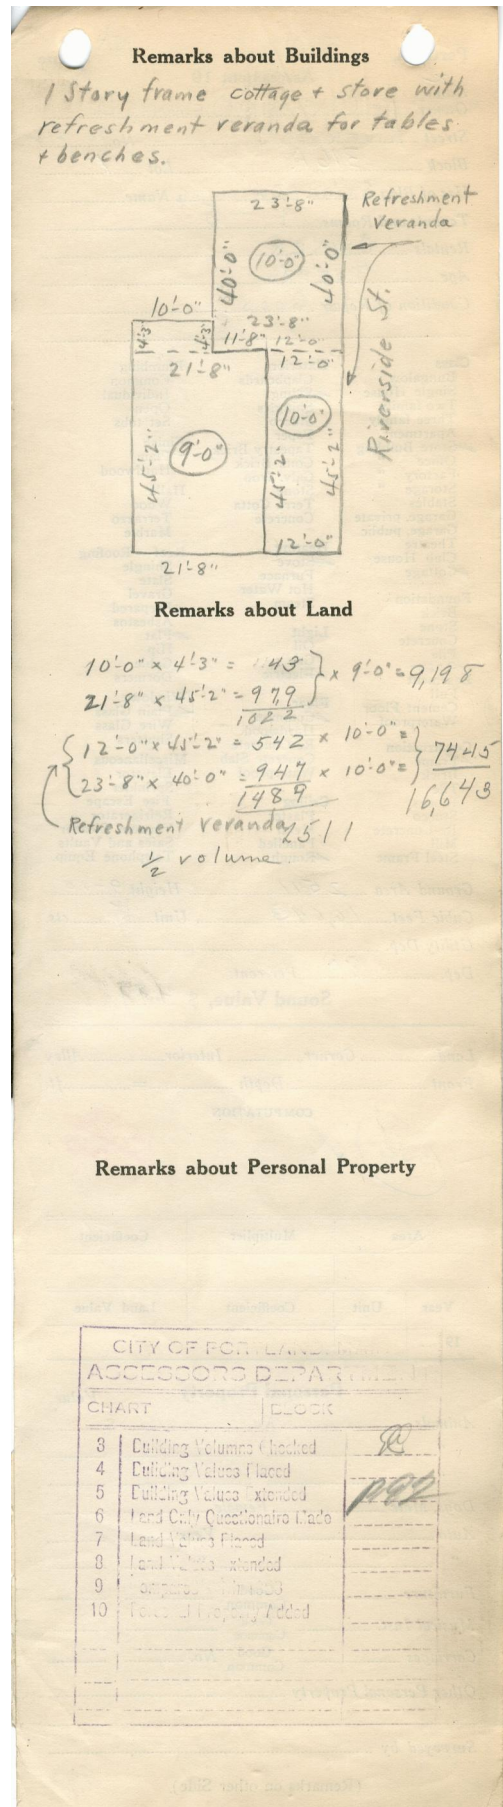 Remarks about Buildings
1 Story frame cottage + store with
refreshment veranda for tables
+ benches.
23'-8"
Refreshment
Veranda
40'-0"
10'-0"
40'-0"
10'-0"
23'-8"
4'-3"
4'-3"
11'-8"
12'-0"
21'-8"
12'-0"
Riverside St.
10'-0"
45'-2"
9'-0"
45'-2"
45'-2"
12'-0"
21'-8"
Remarks about Land
10'-0" x 4'-3" = 43 } x 9'-0" = 9,198
21'-8" x 45'-2" = 979
1022
12'-0" x 45'-2" = 542 x 10'-0" = } 7445
23'-8" x 40'-0" = 947 x 10'-0" =
1489
16,643
Refreshment Veranda 2511
1/2 volume
Remarks about Personal Property
CITY OF PORTLAND
ASSESSORS DEPARTMENT
CHART BLOCK
3 Building Volumes Checked
4 Building Values Placed
5 Building Values Extended
6 Land Only Questionaire Made
7 Land Values Placed
8 Land Values Extended
9 Compared
10 Personal Property Added